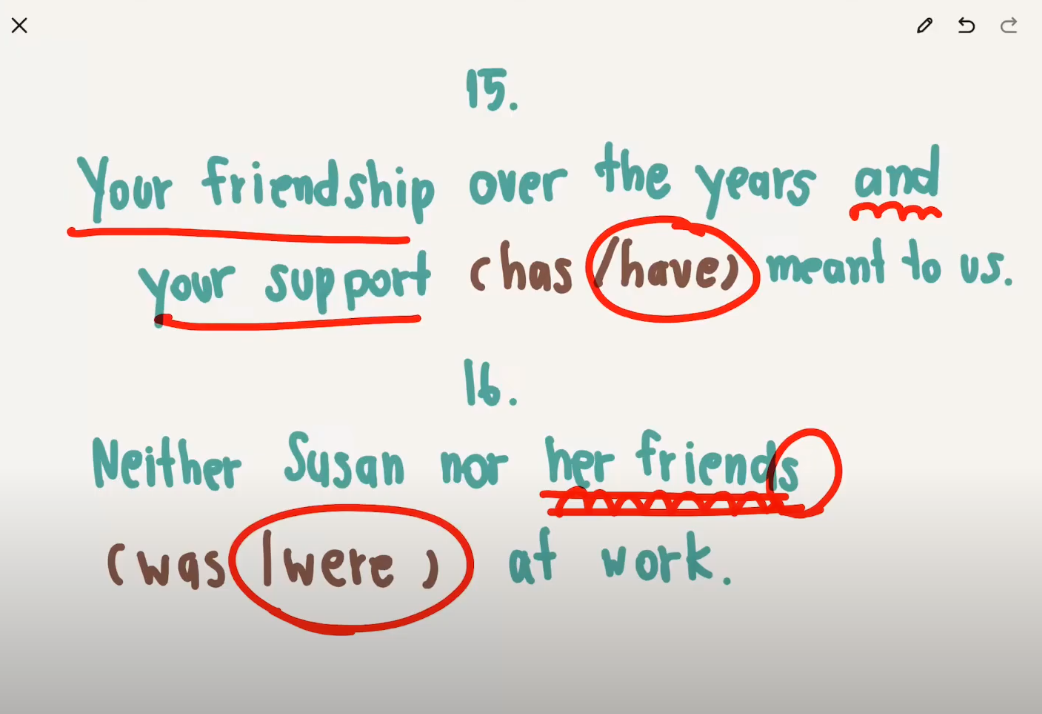 15.
Your friendship over the years and
your support (has /have) meant to us.
16.
Neither Susan nor her friends
(was /were ) at work.